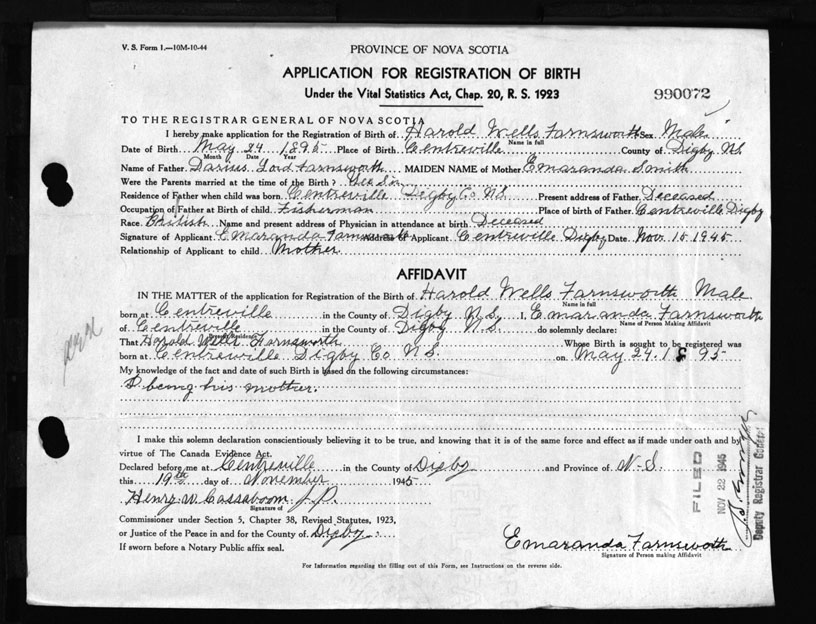 V. S. Form 1.—10M-10-44
PROVINCE OF NOVA SCOTIA
APPLICATION FOR REGISTRATION OF BIRTH
Under the Vital Statistics Act, Chap. 20, R. S. 1923
990072
TO THE REGISTRAR GENERAL OF NOVA SCOTIA
I hereby make application for the Registration of Birth of Harold Wells Farnsworth Sex Male
Name in full
Date of Birth May 24 1895 Place of Birth Centreville County of Digby N.S.
Month Date Year
Name of Father Darius Lord Farnsworth MAIDEN NAME of Mother Emaranda Smith
Were the Parents married at the time of the Birth?
Residence of Father when child was born Centreville Digby Co N.S. Present address of Father Deceased
Occupation of Father at Birth of child Fisherman Place of birth of Father Centreville Digby
Race British Name and present address of Physician in attendance at birth Deceased
Signature of Applicant Emaranda Farnsworth Address of Applicant Centreville Digby Date Nov. 15 1945
Relationship of Applicant to child Mother
AFFIDAVIT
IN THE MATTER of the application for Registration of the Birth of Harold Wells Farnsworth Male
Name in full
born at Centreville in the County of Digby N.S. I, Emaranda Farnsworth
Name of Person Making Affidavit
of Centreville in the County of Digby N.S. do solemnly declare:
That Harold Wells Farnsworth Whose Birth is sought to be registered was
born at Centreville Digby Co N.S. on May 24. 1895
My knowledge of the fact and date of such Birth is based on the following circumstances:
I being his mother.
I make this solemn declaration conscientiously believing it to be true, and knowing that it is of the same force and effect as if made under oath and by
virtue of The Canada Evidence Act.
Declared before me at Centreville in the County of Digby and Province of N.S.
this 19th day of November 1945
Henry W Cassaboom J.P.
Signature of
Commissioner under Section 5, Chapter 38, Revised Statutes, 1923,
or Justice of the Peace in and for the County of Digby
If sworn before a Notary Public affix seal.
Emaranda Farnsworth
Signature of Person making Affidavit
For Information regarding the filling out of this Form, see Instructions on the reverse side.
FILED
NOV 22 1945
Deputy Registrar General